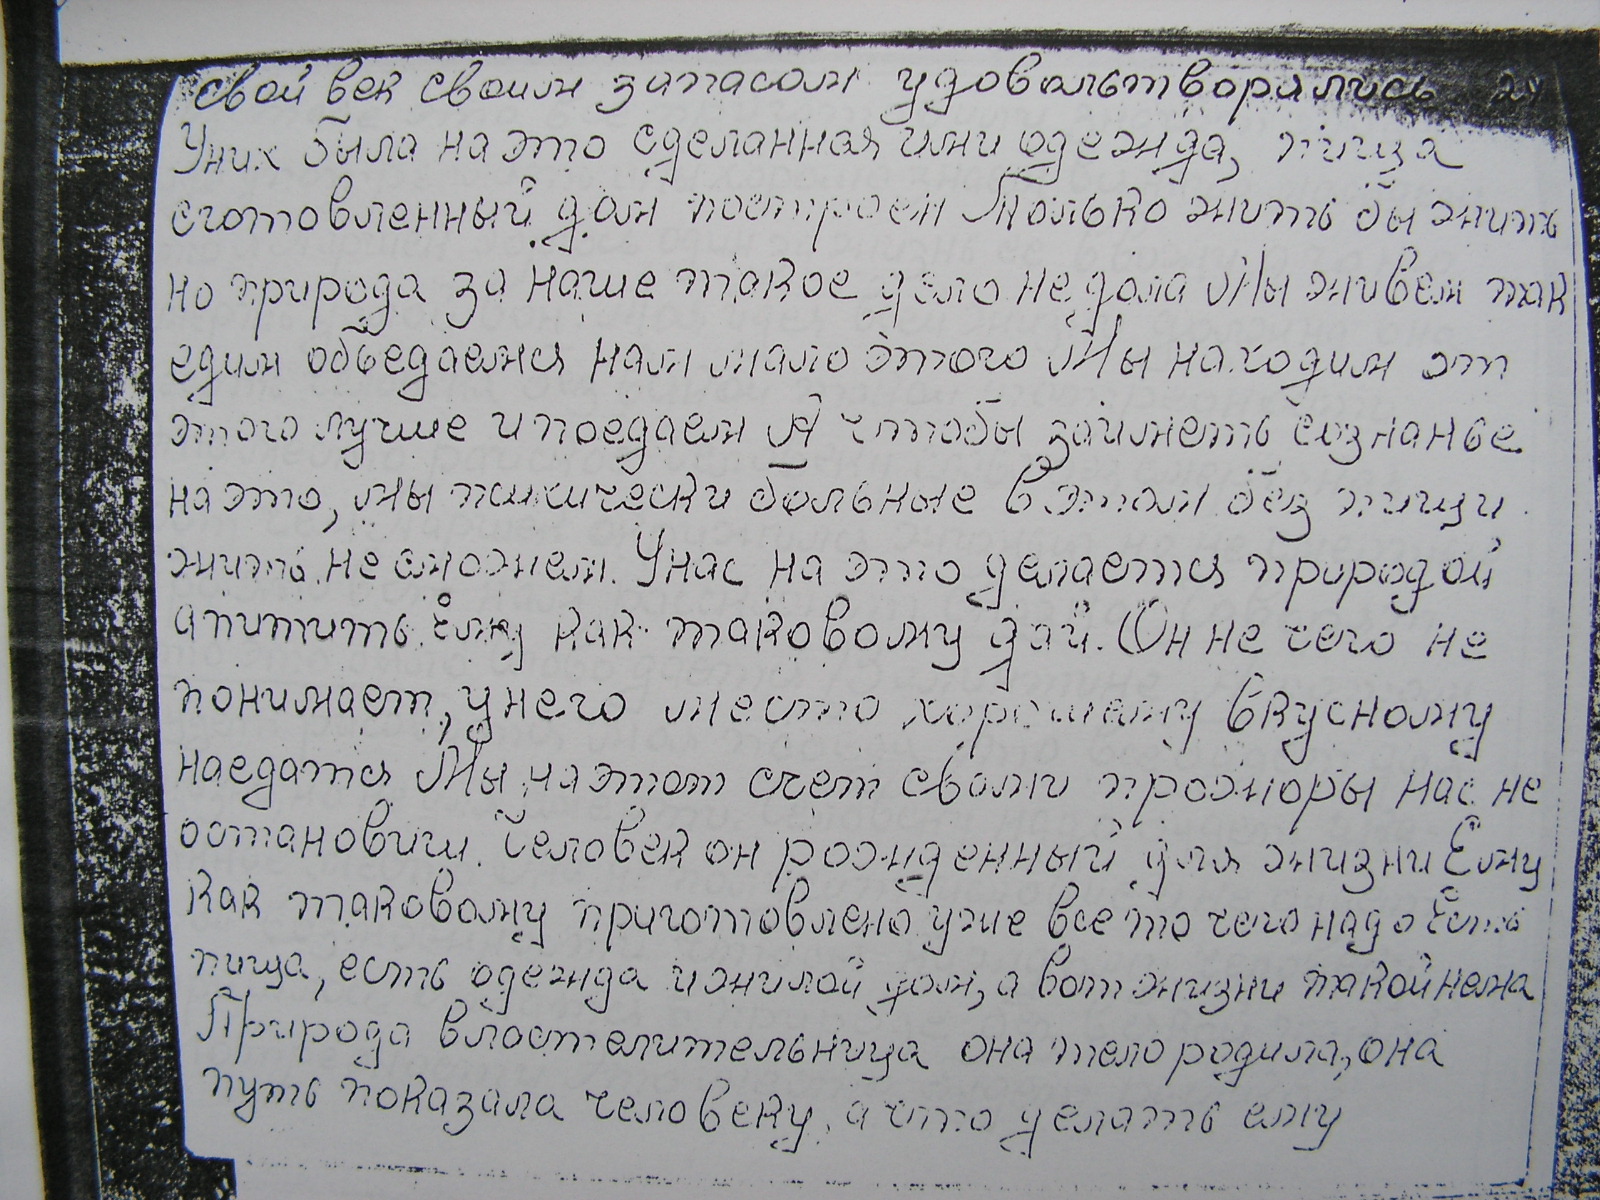 свой век своим запасом удовольтворились 24
Уних была на это сделанная ими одежда, пища
сготовленный дом построен Только жить бы жить
но природа за наше такое дело не дала Мы живем так
едим объедаемся нам мало этого Мы находим от
этого лучше и поедаем А чтобы заиметь сознанье
на это, мы психически больные в этом без пищи
жить не сможем. Унас на это делается природой
апитить ёму как таковому дай. Он не чего не
понимает, у него место хорошему вкусному
наедатся Мы на этот счет свами прожоры нас не
остановиш. Человек он рожденный для жизни Ёму
как таковому приготовлено уже все то чего надо Ёсть
пища, есть одежда и жилой дом, а вот жизни такой нема
Природа властелительница она тело родила, она
путь показала человеку, а что делать ему